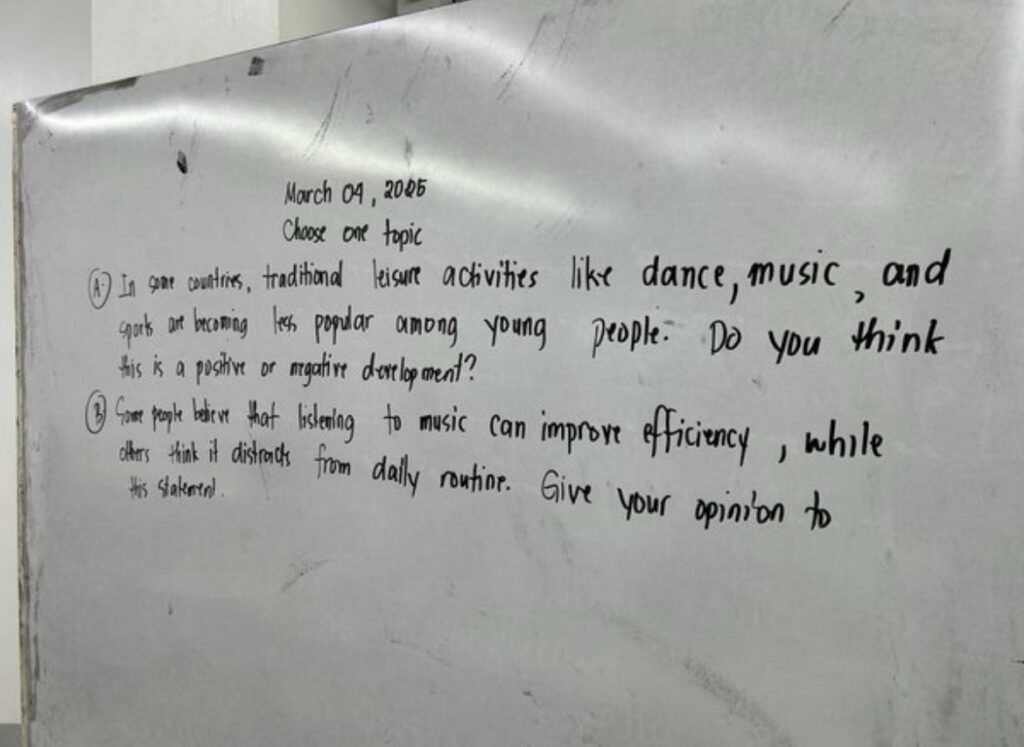 March 04, 2025
Choose one topic
A. In some countries, traditional leisure activities like dance, music, and
sports are becoming less popular among young people. Do you think
this is a positive or negative development?
B Some people believe that listening to music can improve efficiency, while
others think it distracts from daily routine. Give your opinion to
this statement.